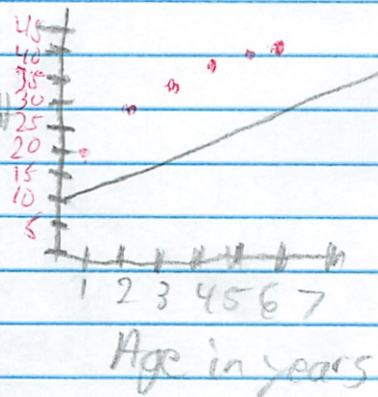 45
40
35
30
25
20
15
10
5
1 2 3 4 5 6 7
Age in years